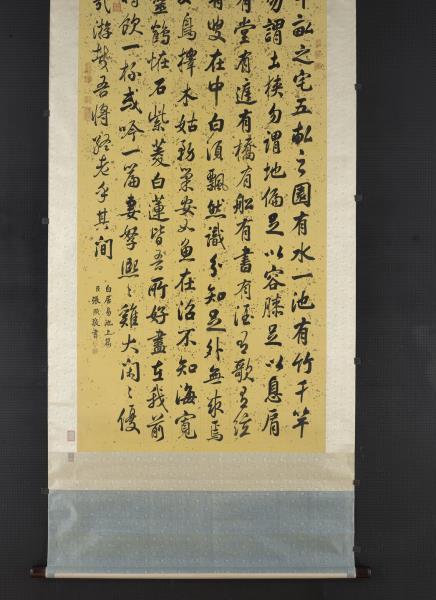 十畝之宅五畝之園有水一池有竹千竿
勿謂土狹勿謂地偏足以容膝足以息肩
有堂有庭有橋有船有書有酒有歌有絃
有叟在中白須飄然識分知足外無求焉
鳥擇木姑務巢安如魚在沼不知海寬
靈鶴怪石紫菱白蓮皆吾所好盡在我前
時飲一杯或吟一篇妻孥熙〻雞犬閑〻優
哉游哉吾將終老乎其間
白居易池上篇
臣張照敬書